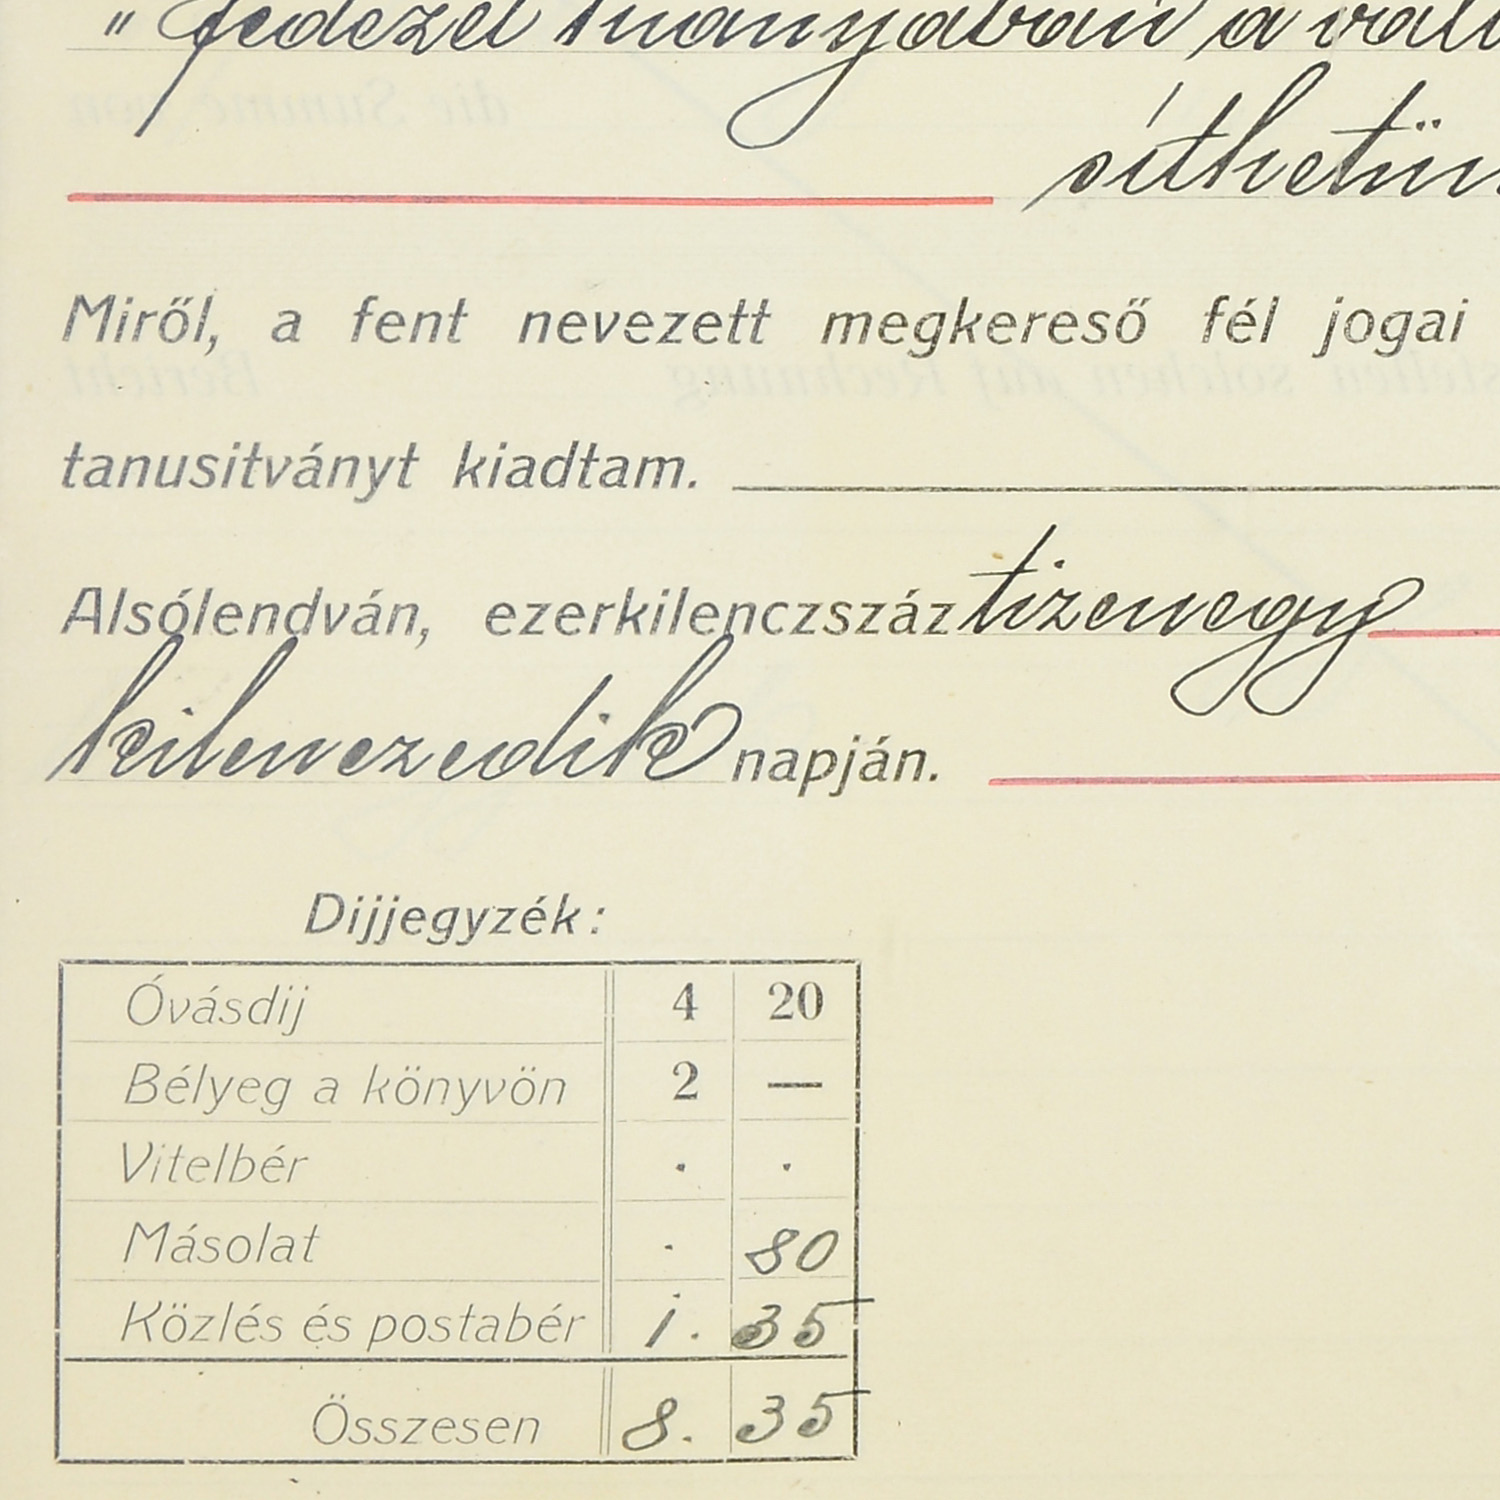 " fedezet hiányában a vált
síthetün
Miről, a fent nevezett megkereső fél jogai
tanusitványt kiadtam.
Alsólendván, ezerkilenczszáz tizenegy
kilenczedik napján.
Dijjegyzék:
Óvásdij 4 20
Bélyeg a könyvön 2 —
Vitelbér . .
Másolat . 80
Közlés és postabér 1. 35
Összesen 8. 35